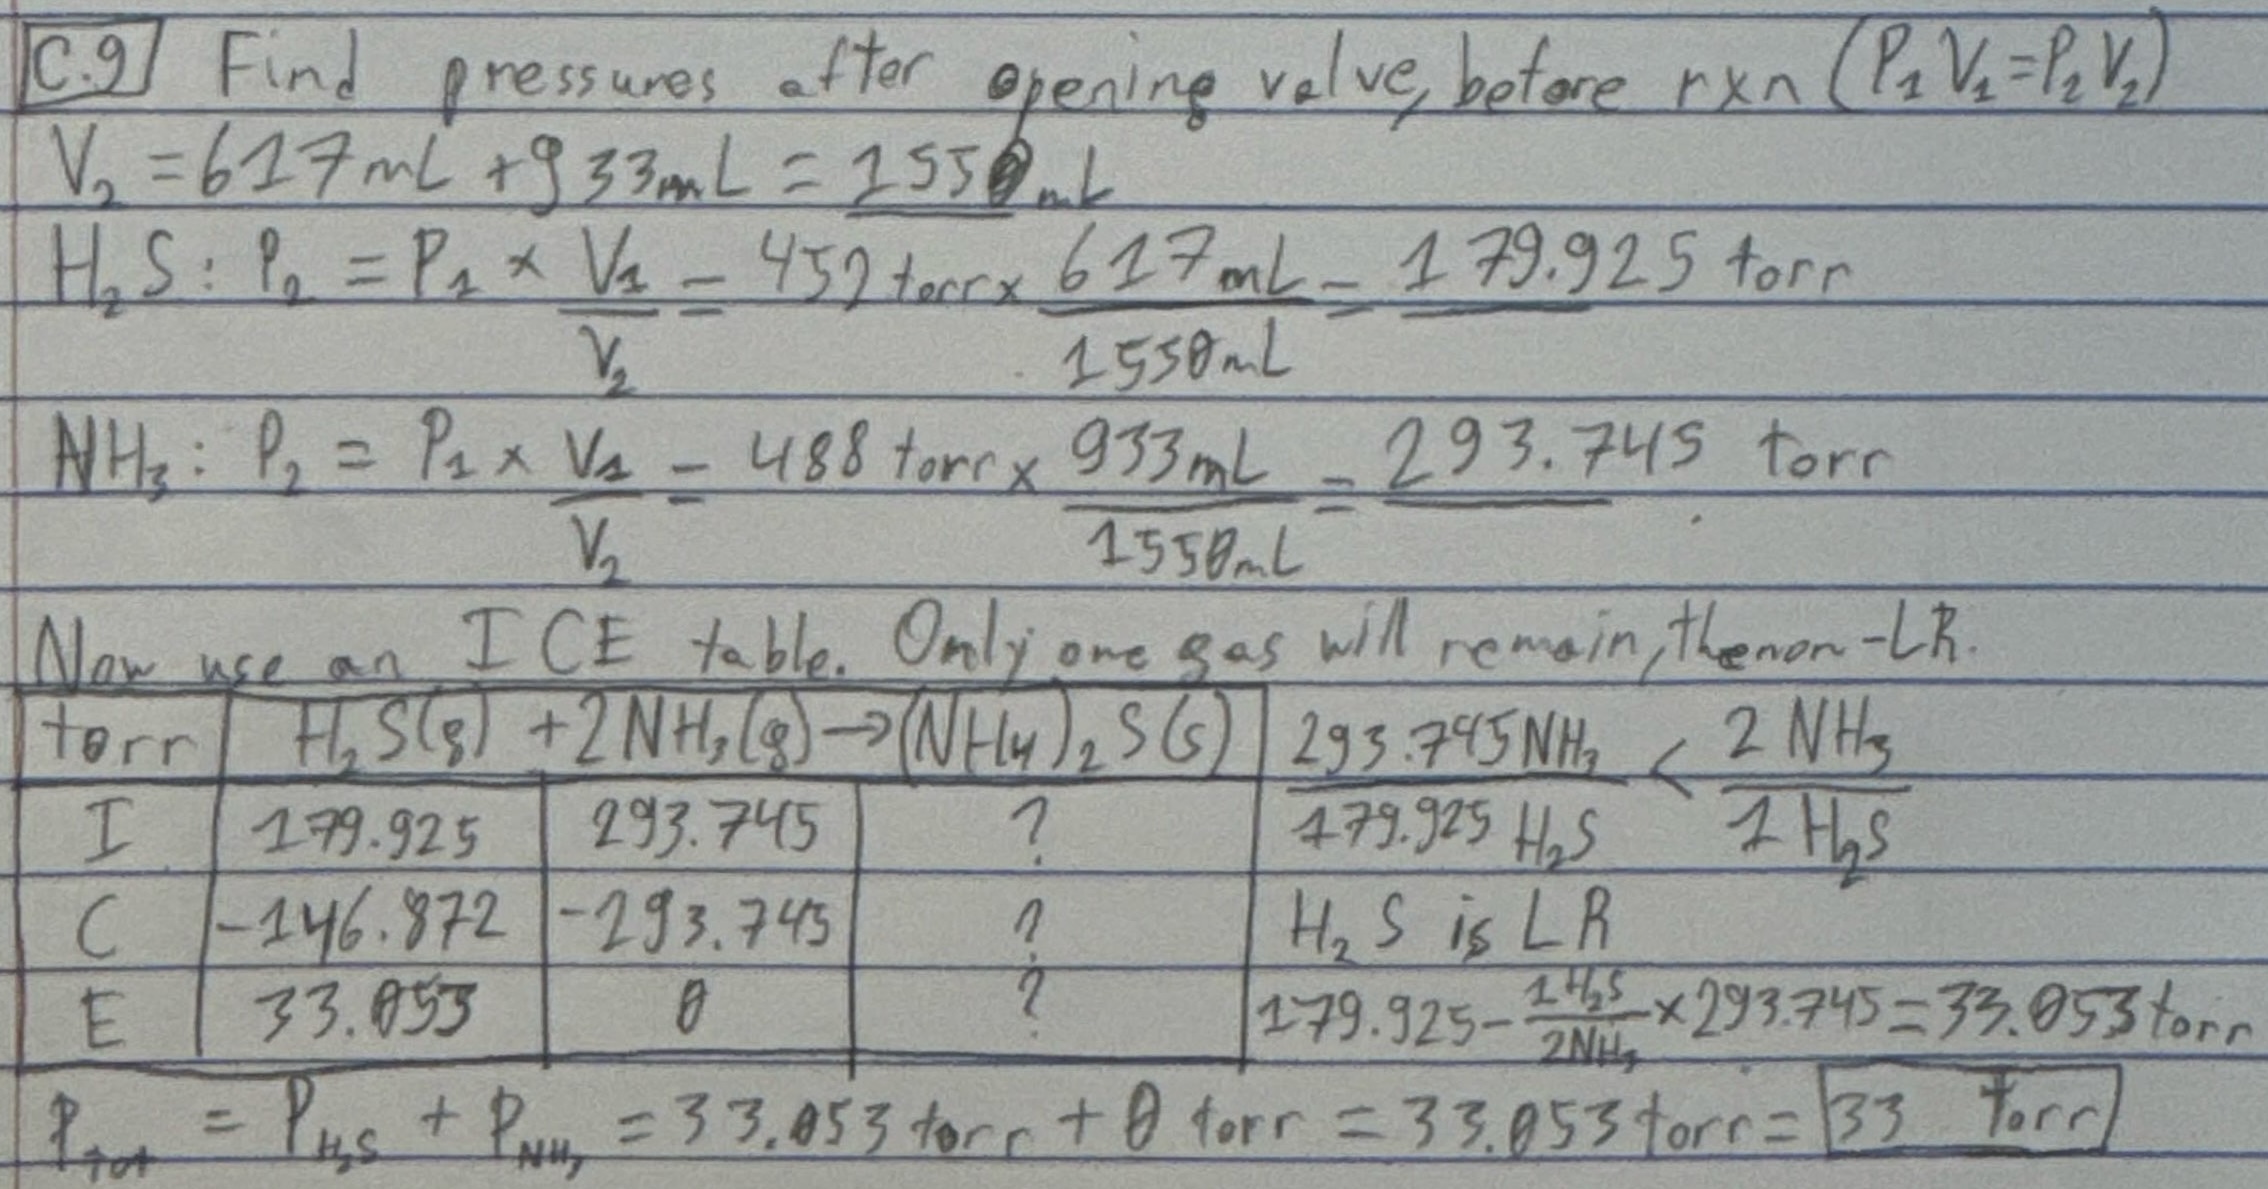 C.9 Find pressures after opening valve, before rxn (P₁V₁=P₂V₂)
V₂ = 617mL + 933mL = 1550mL
H₂S: P₂ = P₁ × V₁/V₂ = 452 torr × 617mL/1550mL = 179.925 torr
NH₃: P₂ = P₁ × V₁/V₂ = 488 torr × 933mL/1550mL = 293.745 torr
Now use an ICE table. Only one gas will remain, the non-LR.
torr H₂S(g) + 2NH₃(g) → (NH₄)₂S(s) 293.745NH₃/179.925 H₂S < 2 NH₃/1 H₂S
I 179.925 293.745 ?
C -146.872 -293.745 ? H₂S is LR
E 33.053 0 ? 179.925 - 1H₂S/2NH₃ × 293.745 = 33.053 torr
P_tot = P_H₂S + P_NH₃ = 33.053 torr + 0 torr = 33.053 torr = 33 torr